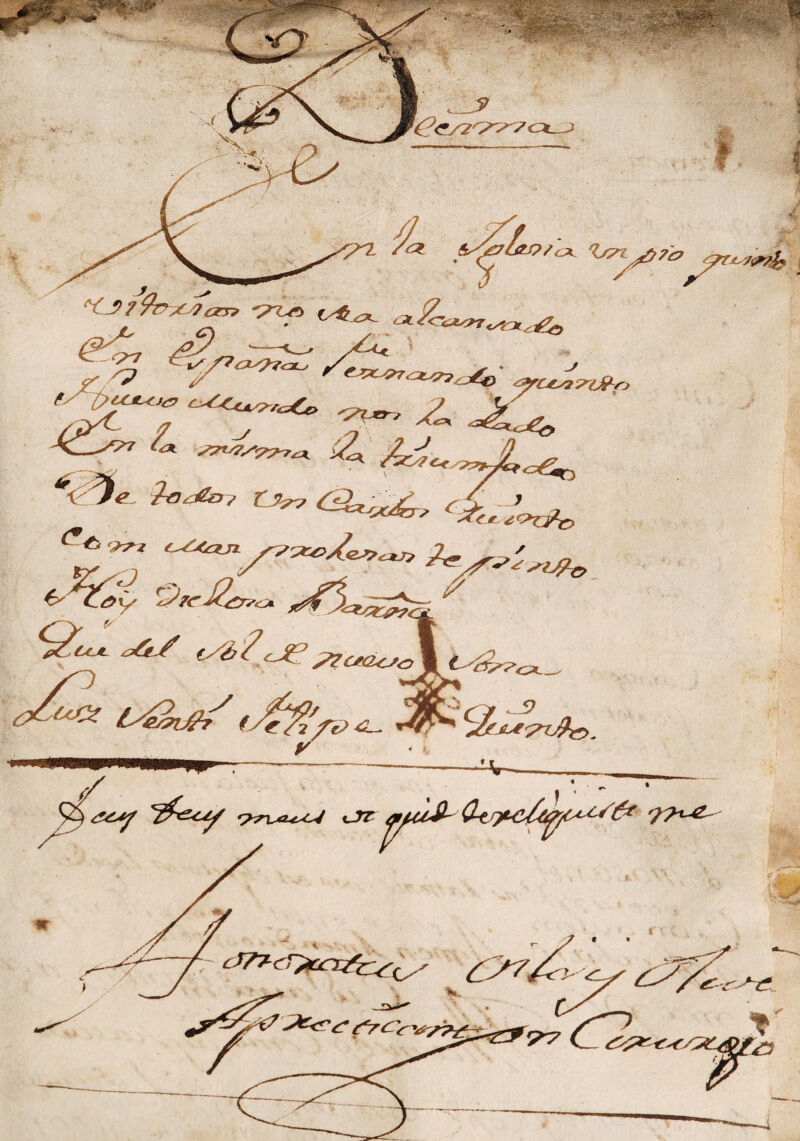 Decima
En la Iglesia un pio quinto
vitorias no sea alcansado
En España Fernando quinto
Nuevo Mundo nos ha dado
En la misma ha triumfado
De todos Un Carlos Quinto
com mas prohesas te pinto
Hoy dichosa Barña
Que del sol de nuevo sona
Lus Senti Felipe Quinto.
Deus Deus meus ut quid dereliquisti me
Honoratus Vila y Olivé
Apracticant en Cirurgia